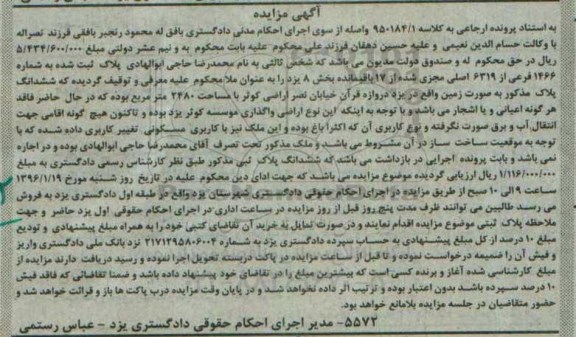 آگهی مزایده
به استناد پرونده ارجاعی به کلاسه ۹۵۰۱۸۴/۱ واصله از سوی اجرای احکام مدنی دادگستری بافق له محمود رنجبر بافقی فرزند نصراله
با وکالت حسام الدین نعیمی و علیه حسین دهقان فرزند علی محکوم علیه بابت محکوم به و نیم عشر دولتی مبلغ ۵/۴۳۴/۶۰۰/۰۰۰
ریال در حق محکوم له و صندوق دولت مدیون می باشد که شخص ثالثی به نام محمدرضا حاجی ابوالهادی پلاک ثبت شده به شماره
۱۴۶۶ فرعی از ۶۳۱۹ اصلی مجزی شده از ۱۷ باقیمانده بخش ۸ یزد را به عنوان ملا محکوم علیه معرفی و توقیف گردیده که ششدانگ
پلاک مذکور به صورت زمین واقع در یزد دروازه قرآن خیابان نصر اراضی کوثر با مساحت ۲۴۸۰ متر مربع بوده که در حال حاضر فاقد
هر گونه اعیانی و یا اشجار می باشد و با توجه به اینکه این نوع اراضی واگذاری موسسه کوثر یزد بوده و تاکنون هیچ گونه اقامی جهت
انتقال آب و برق صورت نگرفته و نوع کاربری آن که اکثرا باغ بوده و این ملک نیز با کاربری مسکونی تغییر کاربری داده شده که با
توجه به موقعیت ساخت ساز در آن مشروط می باشد و ملک مذکور تحت تصرف آقای محمدرضا حاجی ابوالهادی بوده و در اجاره
نمی باشد و بابت پرونده اجرایی در بازداشت می باشد که ششدانگ پلاک ثبتی مذکور طبق نظر کارشناس رسمی دادگستری به مبلغ
۱/۱۱۶/۰۰۰/۰۰۰ ریال ارزیابی گردیده موضوع مزایده می باشد که جهت ادای دین محکوم علیه در تاریخ روز شنبه مورخ ۱۳۹۶/۱/۱۹
ساعت ۹ الی ۱۰ صبح از طریق مزایده در اجرای احکام حقوقی دادگستری شهرستان یزد واقع در طبقه اول دادگستری یزد به فروش
می رسد طالبین می توانند ظرف مدت پنج روز قبل از روز مزایده در ساعت اداری در اجرای احکام حقوقی اول یزد حاضر و جهت
ملاحظه پلاک ثبتی موضوع مزایده اقدام نمایند و در صورت تمایل به خرید آن تقاضای کتبی خود را به همراه مبلغ پیشنهادی و تودیع
مبلغ ۱۰ درصد از کل مبلغ پیشنهادی به حساب سپرده دادگستری یزد به شماره ۲۱۷۱۲۹۵۸۰۶۰۰۴ نزد بانک ملی دادگستری واریز
و فیش آن را ضمیمه درخواست نموده و تا قبل از ساعت مزایده در پاکت دربسته تحویل اجرا نموده و رسید دریافت دارند مزایده از
مبلغ کارشناسی شده آغاز و برنده کسی است که بیشترین مبلغ را در تقاضای خود پیشنهاد داده باشد و ضمنا تقاضائی که فاقد فیش
۱۰ درصد سپرده باشد بدون اعتبار بوده و ترتیب اثر داده نخواهد شد و در پایان وقت مزایده درب پاکت ها باز و قرائت خواهد شد و
حضور متقاضیان در جلسه مزایده بلامانع خواهد بود.
۵۵۷۲- مدیر اجرای احکام حقوقی دادگستری یزد - عباس رستمی